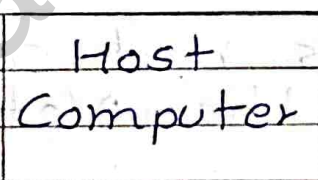 Host
Computer